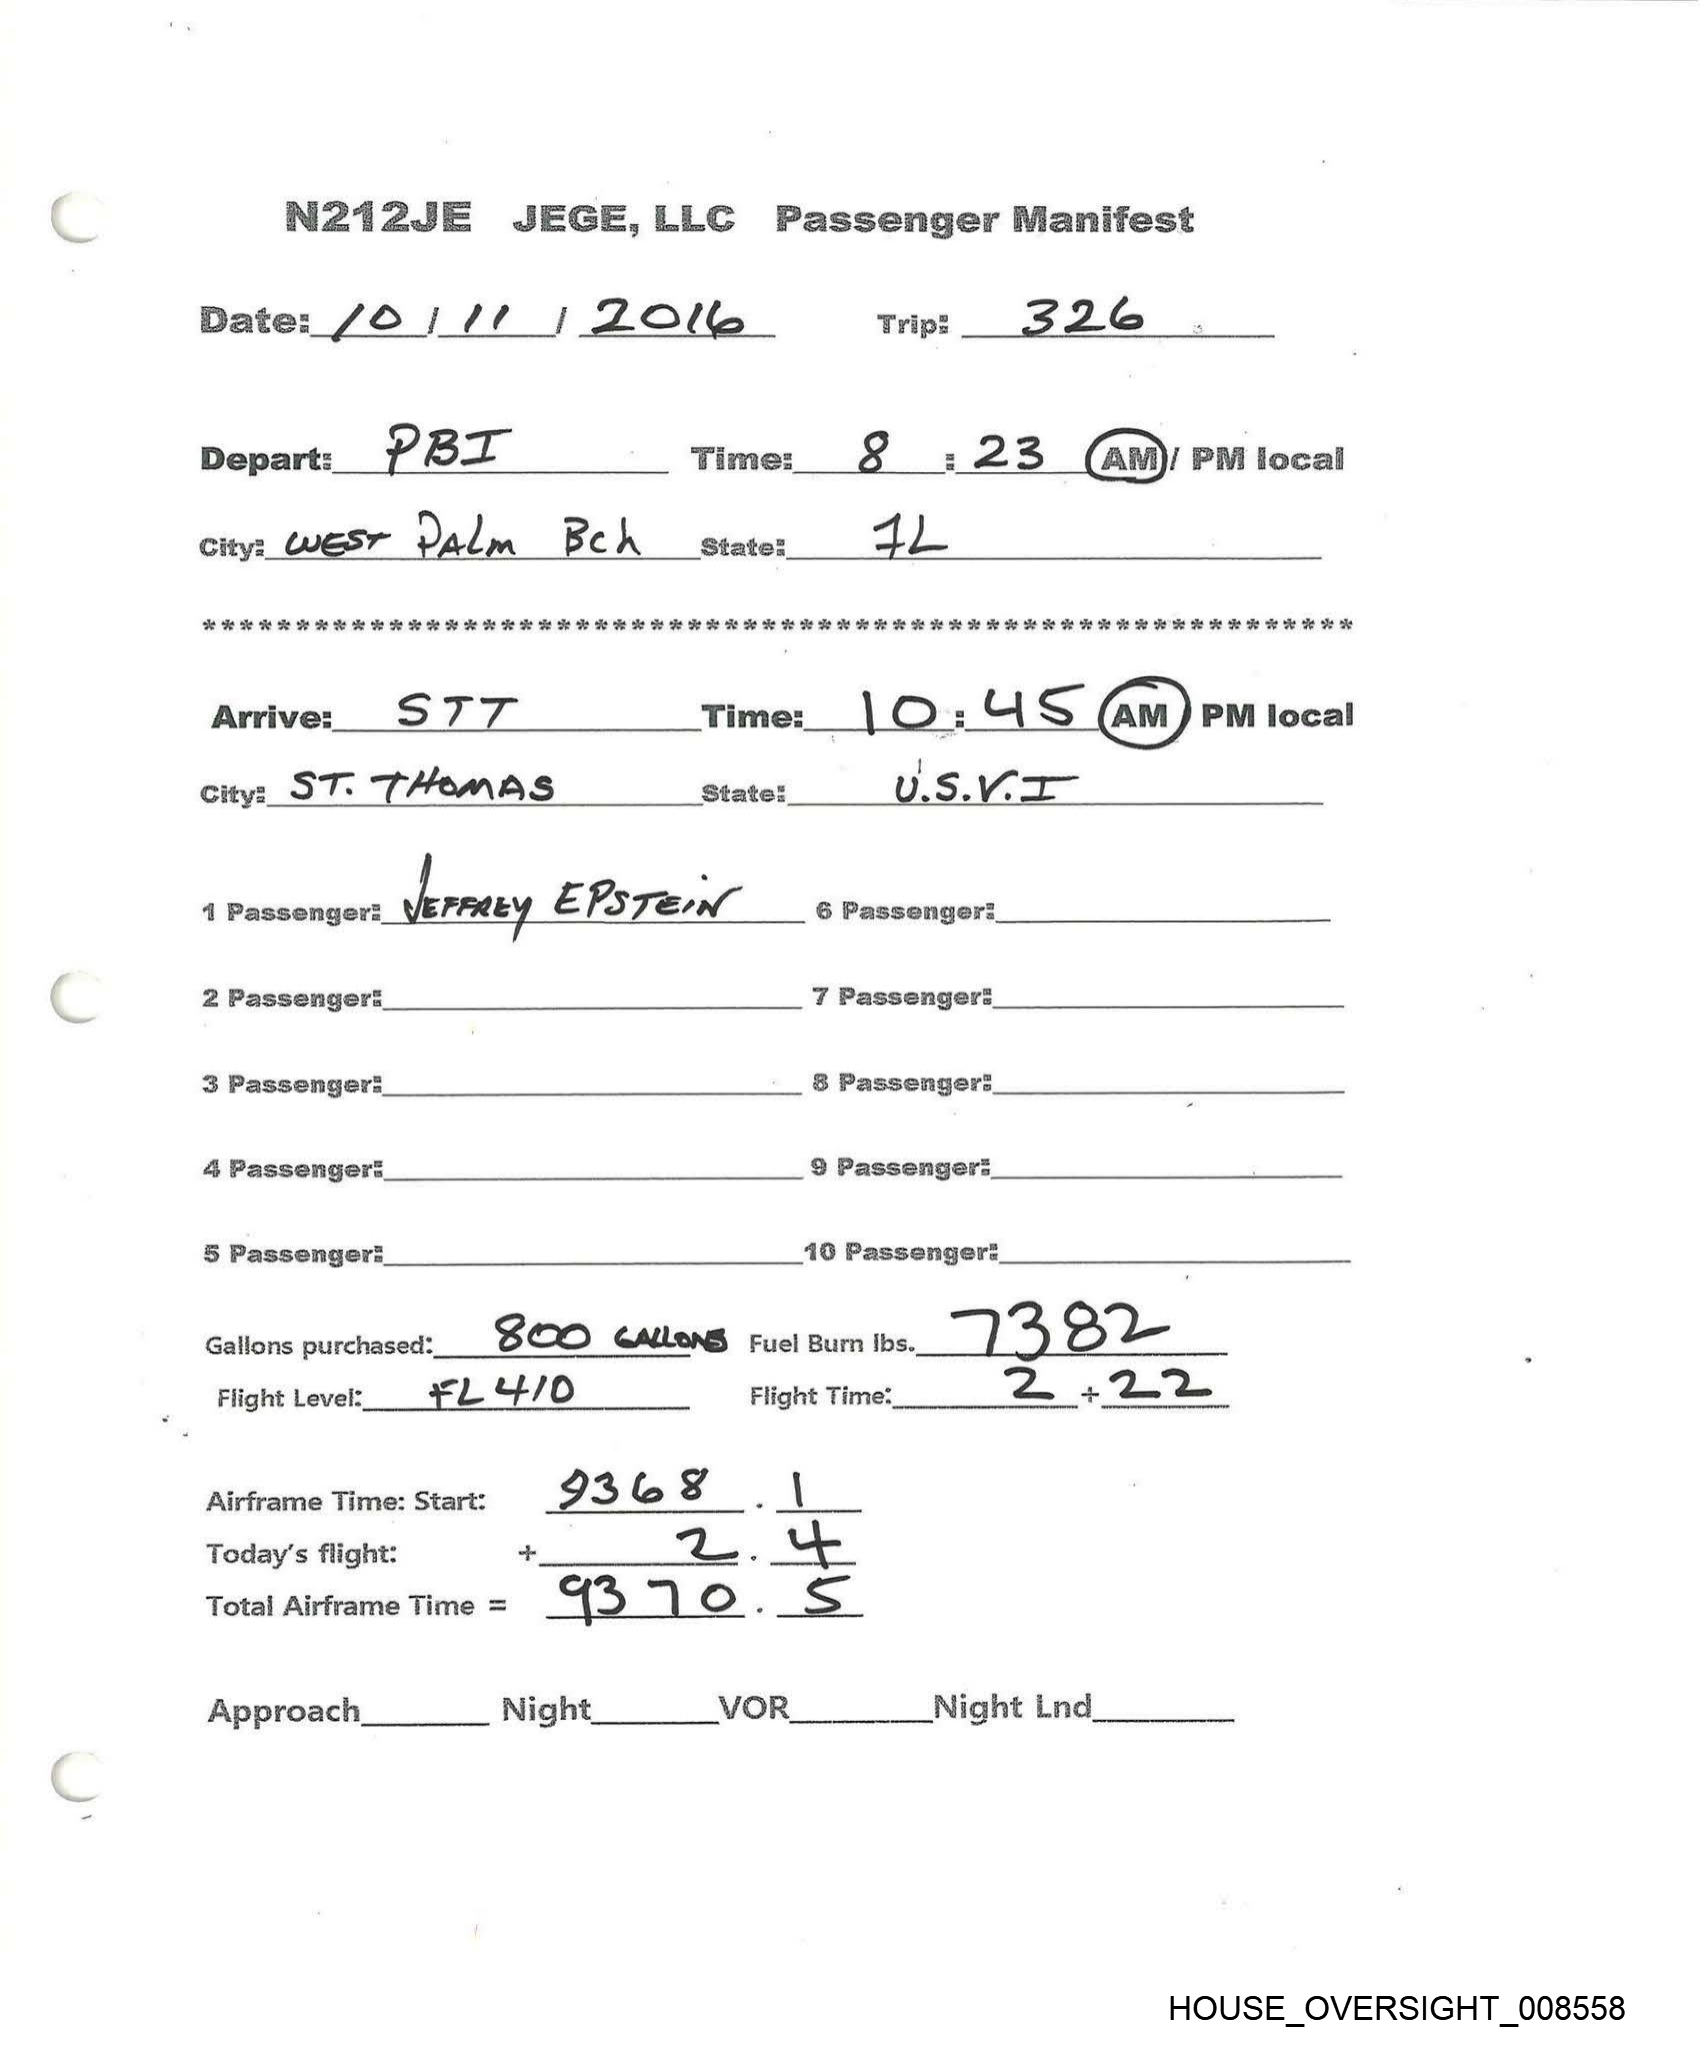 N212JE JEGE, LLC Passenger Manifest
Date: 10 / 11 / 2016 Trip: 326
Depart: PBI Time: 8 : 23 AM / PM local
City: WEST PALM Bch State: FL
**************************************************************
Arrive: STT Time: 10 : 45 AM PM local
City: ST. THOMAS State: U.S.V.I
1 Passenger: JEFFREY EPSTEIN 6 Passenger:
2 Passenger: 7 Passenger:
3 Passenger: 8 Passenger:
4 Passenger: 9 Passenger:
5 Passenger: 10 Passenger:
Gallons purchased: 800 GALLONS Fuel Burn lbs. 7382
Flight Level: FL410 Flight Time: 2 + 22
Airframe Time: Start: 9368 . 1
Today's flight: + 2 . 4
Total Airframe Time = 9370 . 5
Approach Night VOR Night Lnd
HOUSE_OVERSIGHT_008558